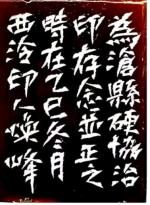 為滄縣硬協治
印存念並正之
時在乙巳冬月
西泠印人焕峰